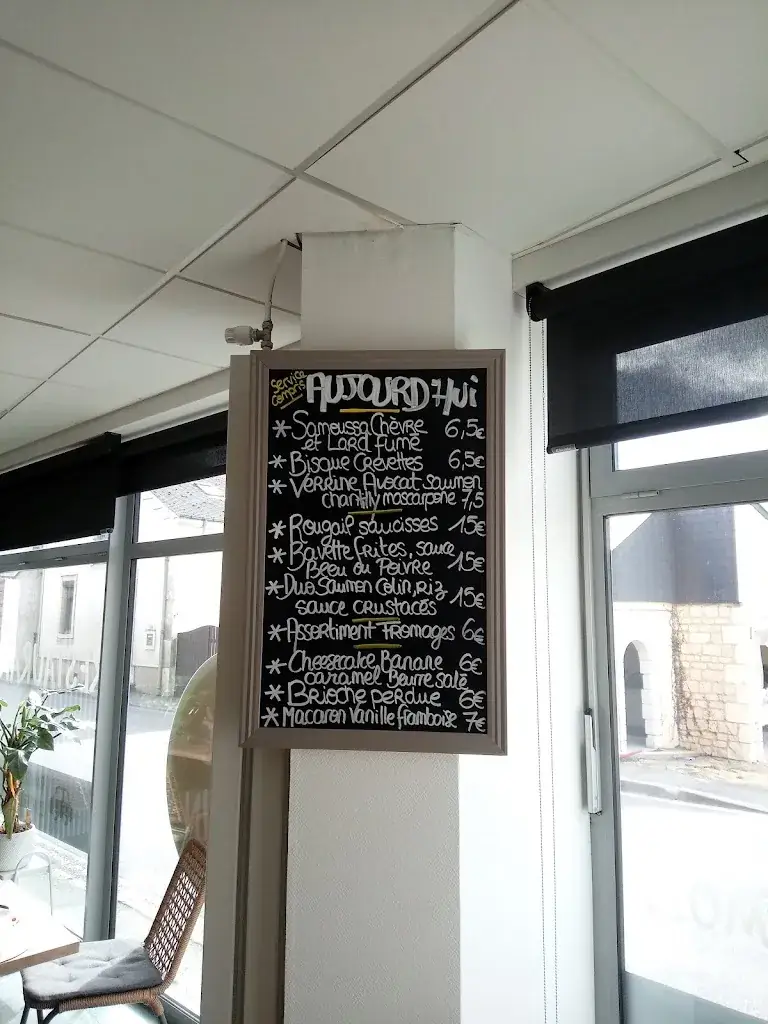 Service compris
AUJOURD'Hui
* Samoussa Chèvre 6,5€
et Lard fumé
* Bisque Crevettes 6,5€
* Verrine Avocat saumon
chantilly mascarpone 7,5
* Rougail saucisses 15€
* Bavette frites, sauce
Bleu ou Poivre 15€
* Duo Saumon Colin, riz
sauce crustacés 15€
* Assortiment Fromages 6€
* Cheesecake Banane 6€
caramel Beurre salé
* Brioche perdue 6€
* Macaron Vanille framboise 7€